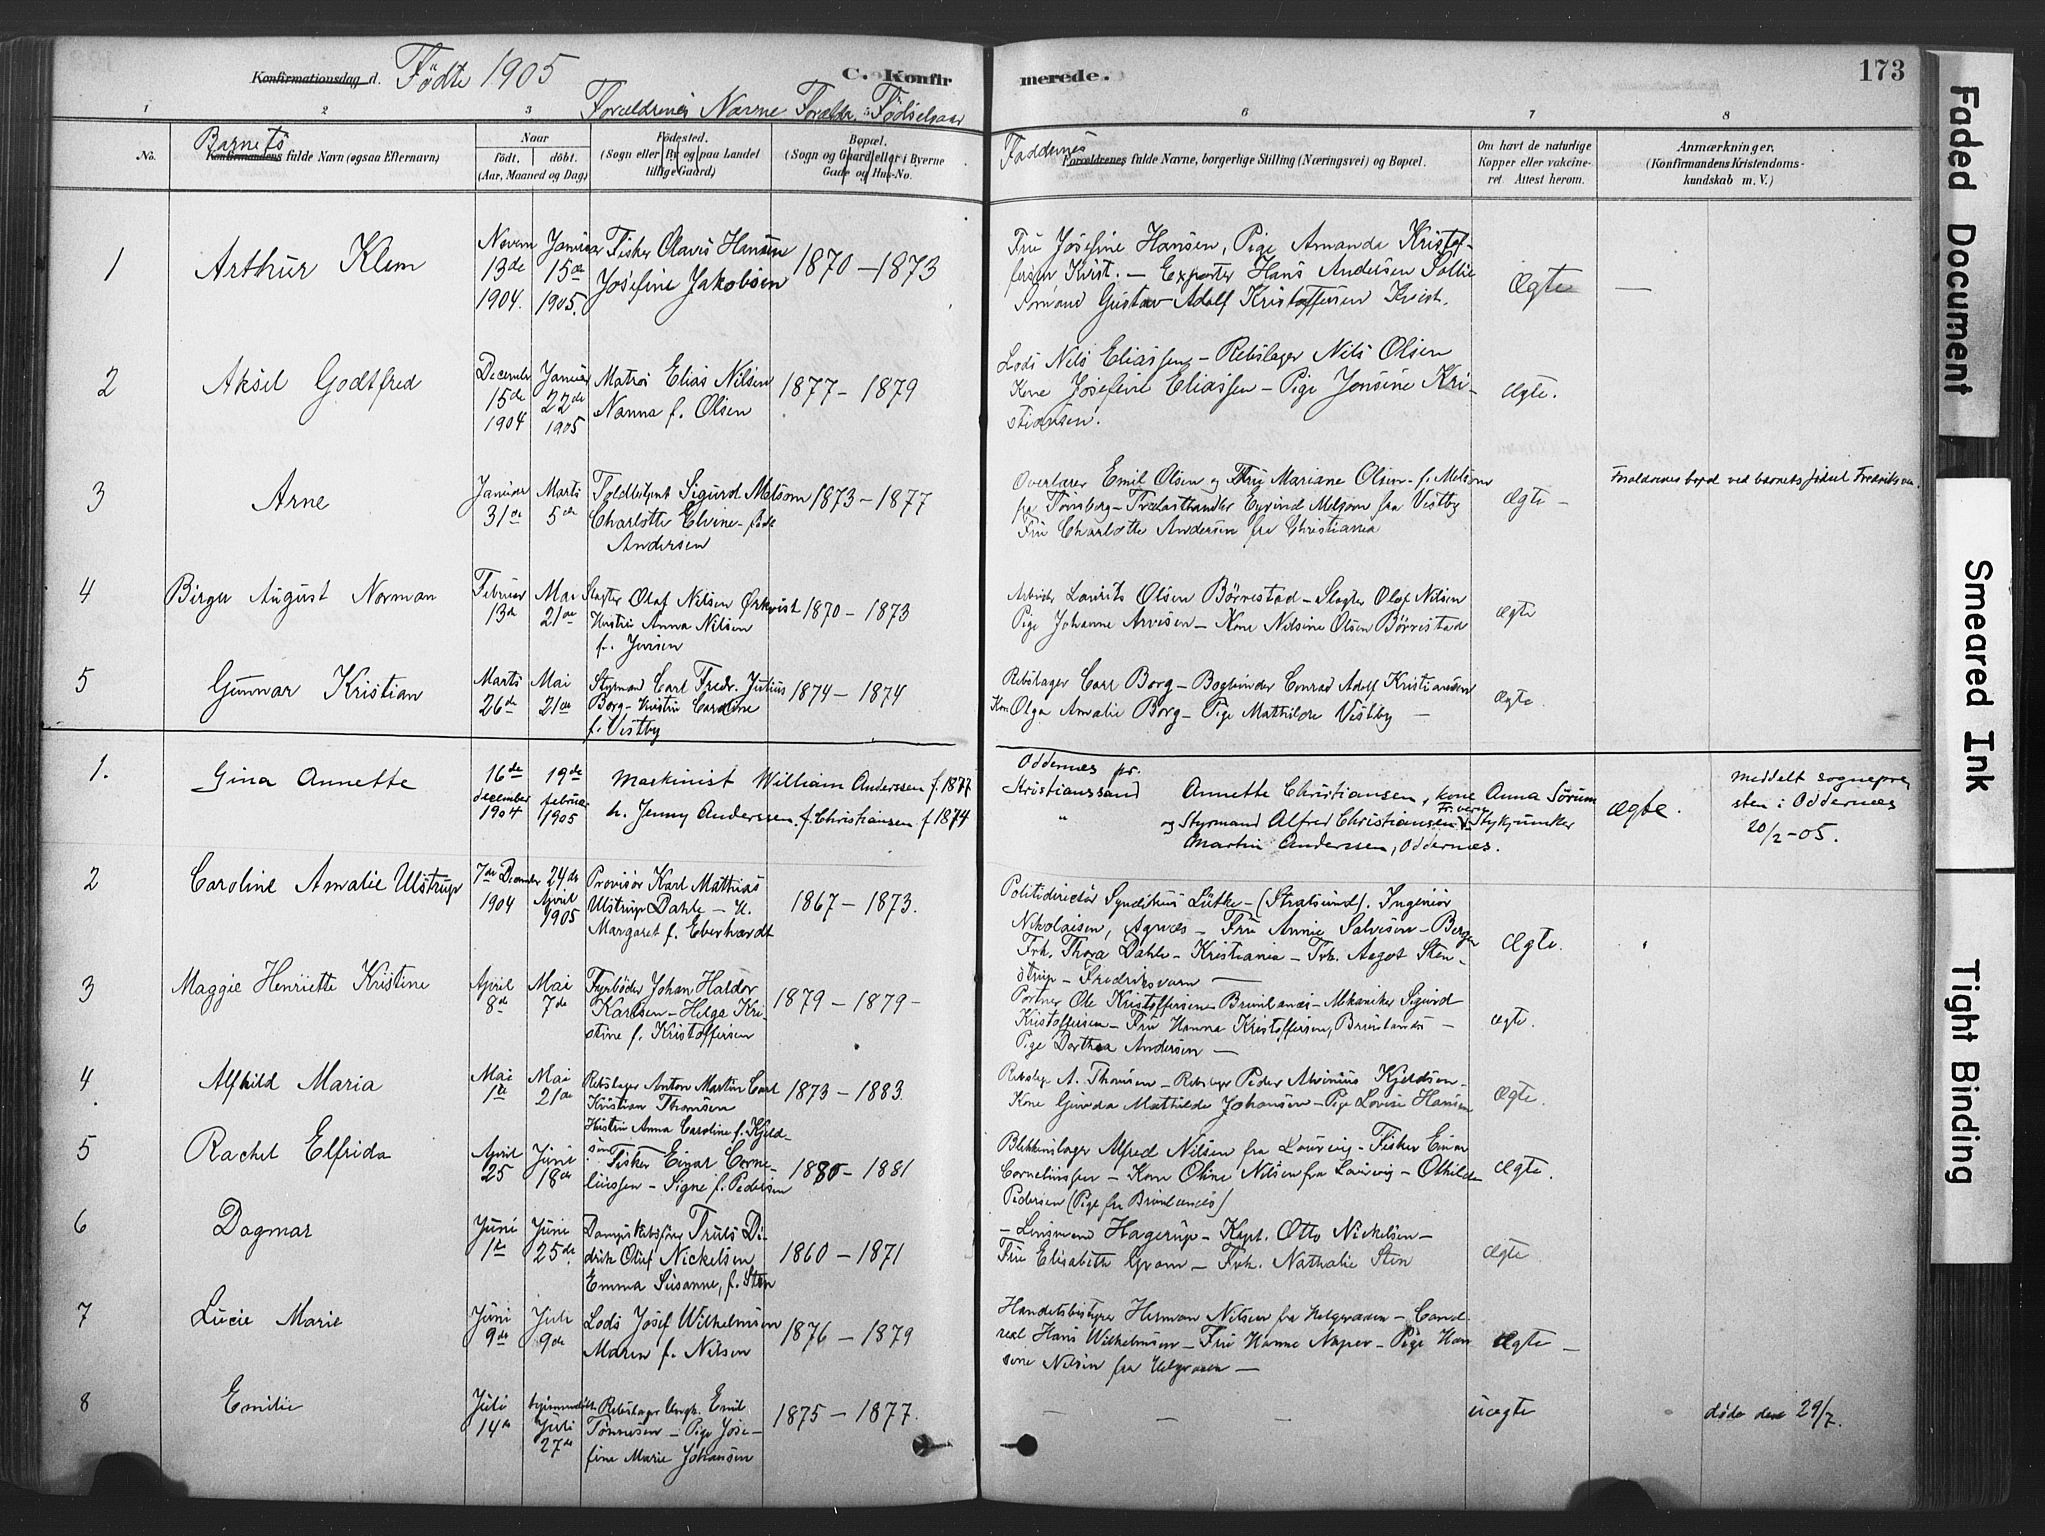 Konfirmationsdag d. Födte 1905
C. Konfir merede. 173
1 2 3 Forældrenes Navne Foræld. Fødselsaar 6 7 8
No.
Barnets
Konfirmandens fulde Navn (ogsaa Efternavn)
Naar
født. døbt.
(Aar, Maaned og Dag)
Fødested.
(Sogn eller By og paa Landet
tillige Gaard)
Bopæl.
(Sogn og Gaard eller i Byerne
Gade og Hus-No.
Faddernes
Forældrenes fulde Navne, borgerlige Stilling (Næringsvei) og Bopæl.
Om havt de naturlige
Kopper eller vakcine-
ret. Attest herom.
Anmærkninger.
(Konfirmandens Kristendoms-
kundskab m. V.)
1 Arthur Klem
Novem
13de
1904.
Januar
15de
1905.
Fisker Olavis Hansen
Josefine Jakobsen
1870 – 1873
Fru Josefine Hansen, Pige Amanda Kristof-
fersen Kvist. – Hans Andersen Sollie
Gustav Adolf Kristoffersen Kvist.
Ægte —
2 Aksel Godtfred
December
15de
1904
Januar
22de
1905
Matros Elias Nilsen
Nanna f. Olsen
1877 – 1879
Lods Nils Eliassen – Rebslager Nils Olsen
Kone Josefine Eliassen – Pige Jensine Kri-
stiansen.
Ægte.
3 Arne
Januar
31te
Marts
5de
Toldbetjent Sigurd Melsom
Charlotte Elvine – føde
Andersen
1873 – 1877
Overlærer Emil Olsen og Fru Mariane Olsen – f. Melsom
fra Tønsberg – Trælasthandler Eyvind Melsom fra Vestby
Fru Charlotte Andersen fra Christiania
Ægte –
Foraldrenes bopæl ved barnets fødsel Fredriksværn
4 Birger August Norman
Februar
13de
Mai
21de
Slagter Olaf Nilsen Ørkvist
Hustru Anna Nilsen
f. Jensen
1870 – 1873
Arbeider Laurits Olsen Børrestad – Slagter Olaf Nilsen
Pige Johanne Arvesen – Kone Nilsine Olsen Børrestad
Ægte
5 Gunnar Kristian
Marts
26de
Mai
21de
Styrmand Carl Fredr. Julius
Borg – Hustru Caroline
f. Vestby
1874 – 1874
Rebslager Carl Borg – Bogbinder Conrad Adolf Kristiansen
Kone Olga Amalie Borg – Pige Mathilde Vestby –
Ægte.
1. Gina Annette
16de
december
1904
19de
februar
1905
Maskinist William Anderssen f. 1877
h. Jenny Anderssen f. Christiansen f 1874
Oddernes pr.
Kristianssand
"
Annette Christiansen, kone Anna Sørum
og Styrmand Alfred Christiansen, Stykjunker
Martin Anderssen, Oddernes.
Ægte.
meddelt sognepre
sten i Oddernes
20/2 – 05.
2 Caroline Amalie Ulstrup
7de December
1904
24de
April
1905
Provisor Karl Mathias
Ulstrup Dahle – H.
Margaret f. Eberhardt
1867 – 1873.
Politidirector Syndikus Lütke – (Stralsund). Ingeniør
Nikolaisen, Agnes – Fru Annie Salvesen – Bergen
Frk. Thora Dahle – Kristiania – Frk. Aagot Sten-
strup – Fredriksværn —
Ægte.
3 Maggie Henriette Kristine
April
8de
Mai
7de
Fyrbøder Johan Haldor
Karlsen – Helga Kri-
stine f. Kristoffersen
1879 – 1879 –
Portner Ole Kristoffersen Brunlanes – Mekaniker Sigurd
Kristoffersen – Fru Hanna Kristoffersen, Brunlanes –
Pige Dorthea Andersen —
Ægte.
4 Alfhild Maria
Mai
1ste
Mai
21de
Rebslager Anton Martin Carl
Kristian Thomsen
Hustru Anna Caroline f. Kjeld-
sen
1873 – 1883.
Rebslager A. Thomsen – Rebslager Peder Alvinius Kjeldsen –
Kone Gunda Mathilde Johansen – Pige Lovise Hansen
Ægte.
5 Rachel Elfrida
April
25
Juni
18de
Fisker Einar Corne-
liussen – Signe f. Pedersen
1880 – 1881
Blikkenslager Alfred Nilsen fra Laurvig – Fisker Einar
Corneliussen – Kone Oline Nilsen fra Laurvig – Othilde
Pedersen (Pige fra Brunlanes)
Ægte.
6 Dagmar
Juni
1te
Juni
25de
Dampskibsfører Truls Di-
drik Oluf Nickelsen
Emma Susanne, f. Sten
1860 – 1871
– Lensmand Hagerup – Kapt. Otto Nickelsen –
Fru Elisabeth Gram – Frk. Nathalie Sten
Ægte
7 Lucie Marie
Juni
9de
Juli
9de
Lods Josef Wilhelmsen
Maren f. Nilsen
1876 – 1879
Handelsbestyrer Herman Nilsen fra Helgeraaen – Cand.
real Hans Wilhelmsen – Fru Hanne Næper – Pige Han
sine Nilsen fra Helgeraaen —
Ægte –
8 Emilie
Juli
14de
hjemmedøbt
Juli
27de
Rebslager Ungk. Emil
Tønnesen – Pige Jose-
fine Marie Johansen
1875 – 1877.
— — —
uægte
døde den 29/7.
Faded Document
Smeared Ink
Tight Binding